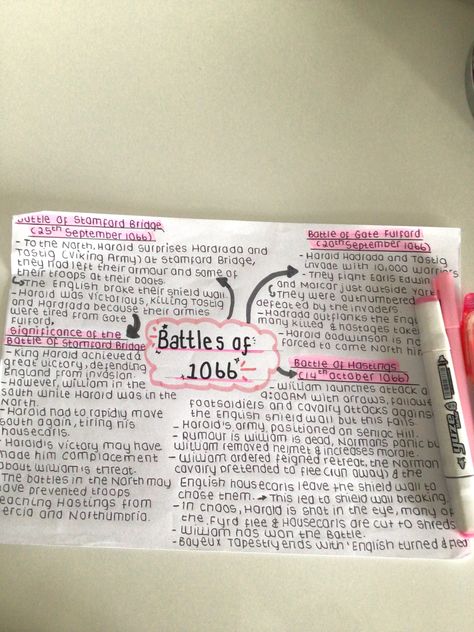 Battle of Stamford Bridge
(25th September 1066)
- To the North, Harald surprises Hardrada and
Tostig (Viking Army) at Stamford Bridge,
they had left their armour and some of
their troops at the boats.
The English brake their shield wall
- Harald was victorious, killing Tostig
and Hardrada because their armies
were tired from Gate
Fulford.
Significance of the
Battle of Stamford Bridge
- King Harald achieved a
great victory, defending
England from invasion.
- However, William in the
South while Harald was in the
North.
- Harald had to rapidly move
south again, tiring his
housecarls.
- Harald's victory may have
made him complacement
about William's threat.
- The battles in the North may
have prevented troops
reaching Hastings from
Mercia and Northumbria.
Battles of
1066
Battle of Gate Fulford
(20th September 1066)
- Harald Hadrada and Tostig
invade with 10,000 warriors
- They fight Earls Edwin
and Morcar, just outside York
They were outnumbered
defeated by the invaders.
- Hadrada outflanks the English
many killed & hostages taken
- Harald Godwinson is now
forced to come North
Battle of Hastings
(14th October 1066)
- William launches attack at
9:00AM with arrows, followed
footsoldiers and cavalry attacks against
the English shield wall but this fails.
- Harald's army, positioned on Senlac Hill.
- Rumour is William is dead, Normans panic but
William removed helmet & increases morale.
- William ordered feigned retreat, the Norman
cavalry pretended to flee (run away) & the
English housecarls leave the shield wall to
chase them. → This led to shield wall breaking.
- In chaos, Harald is shot in the eye, many of
the Fyrd flee & Housecarls are cut to shreds
- William has won the battle.
- Bayeux Tapestry ends with 'English turned & fled